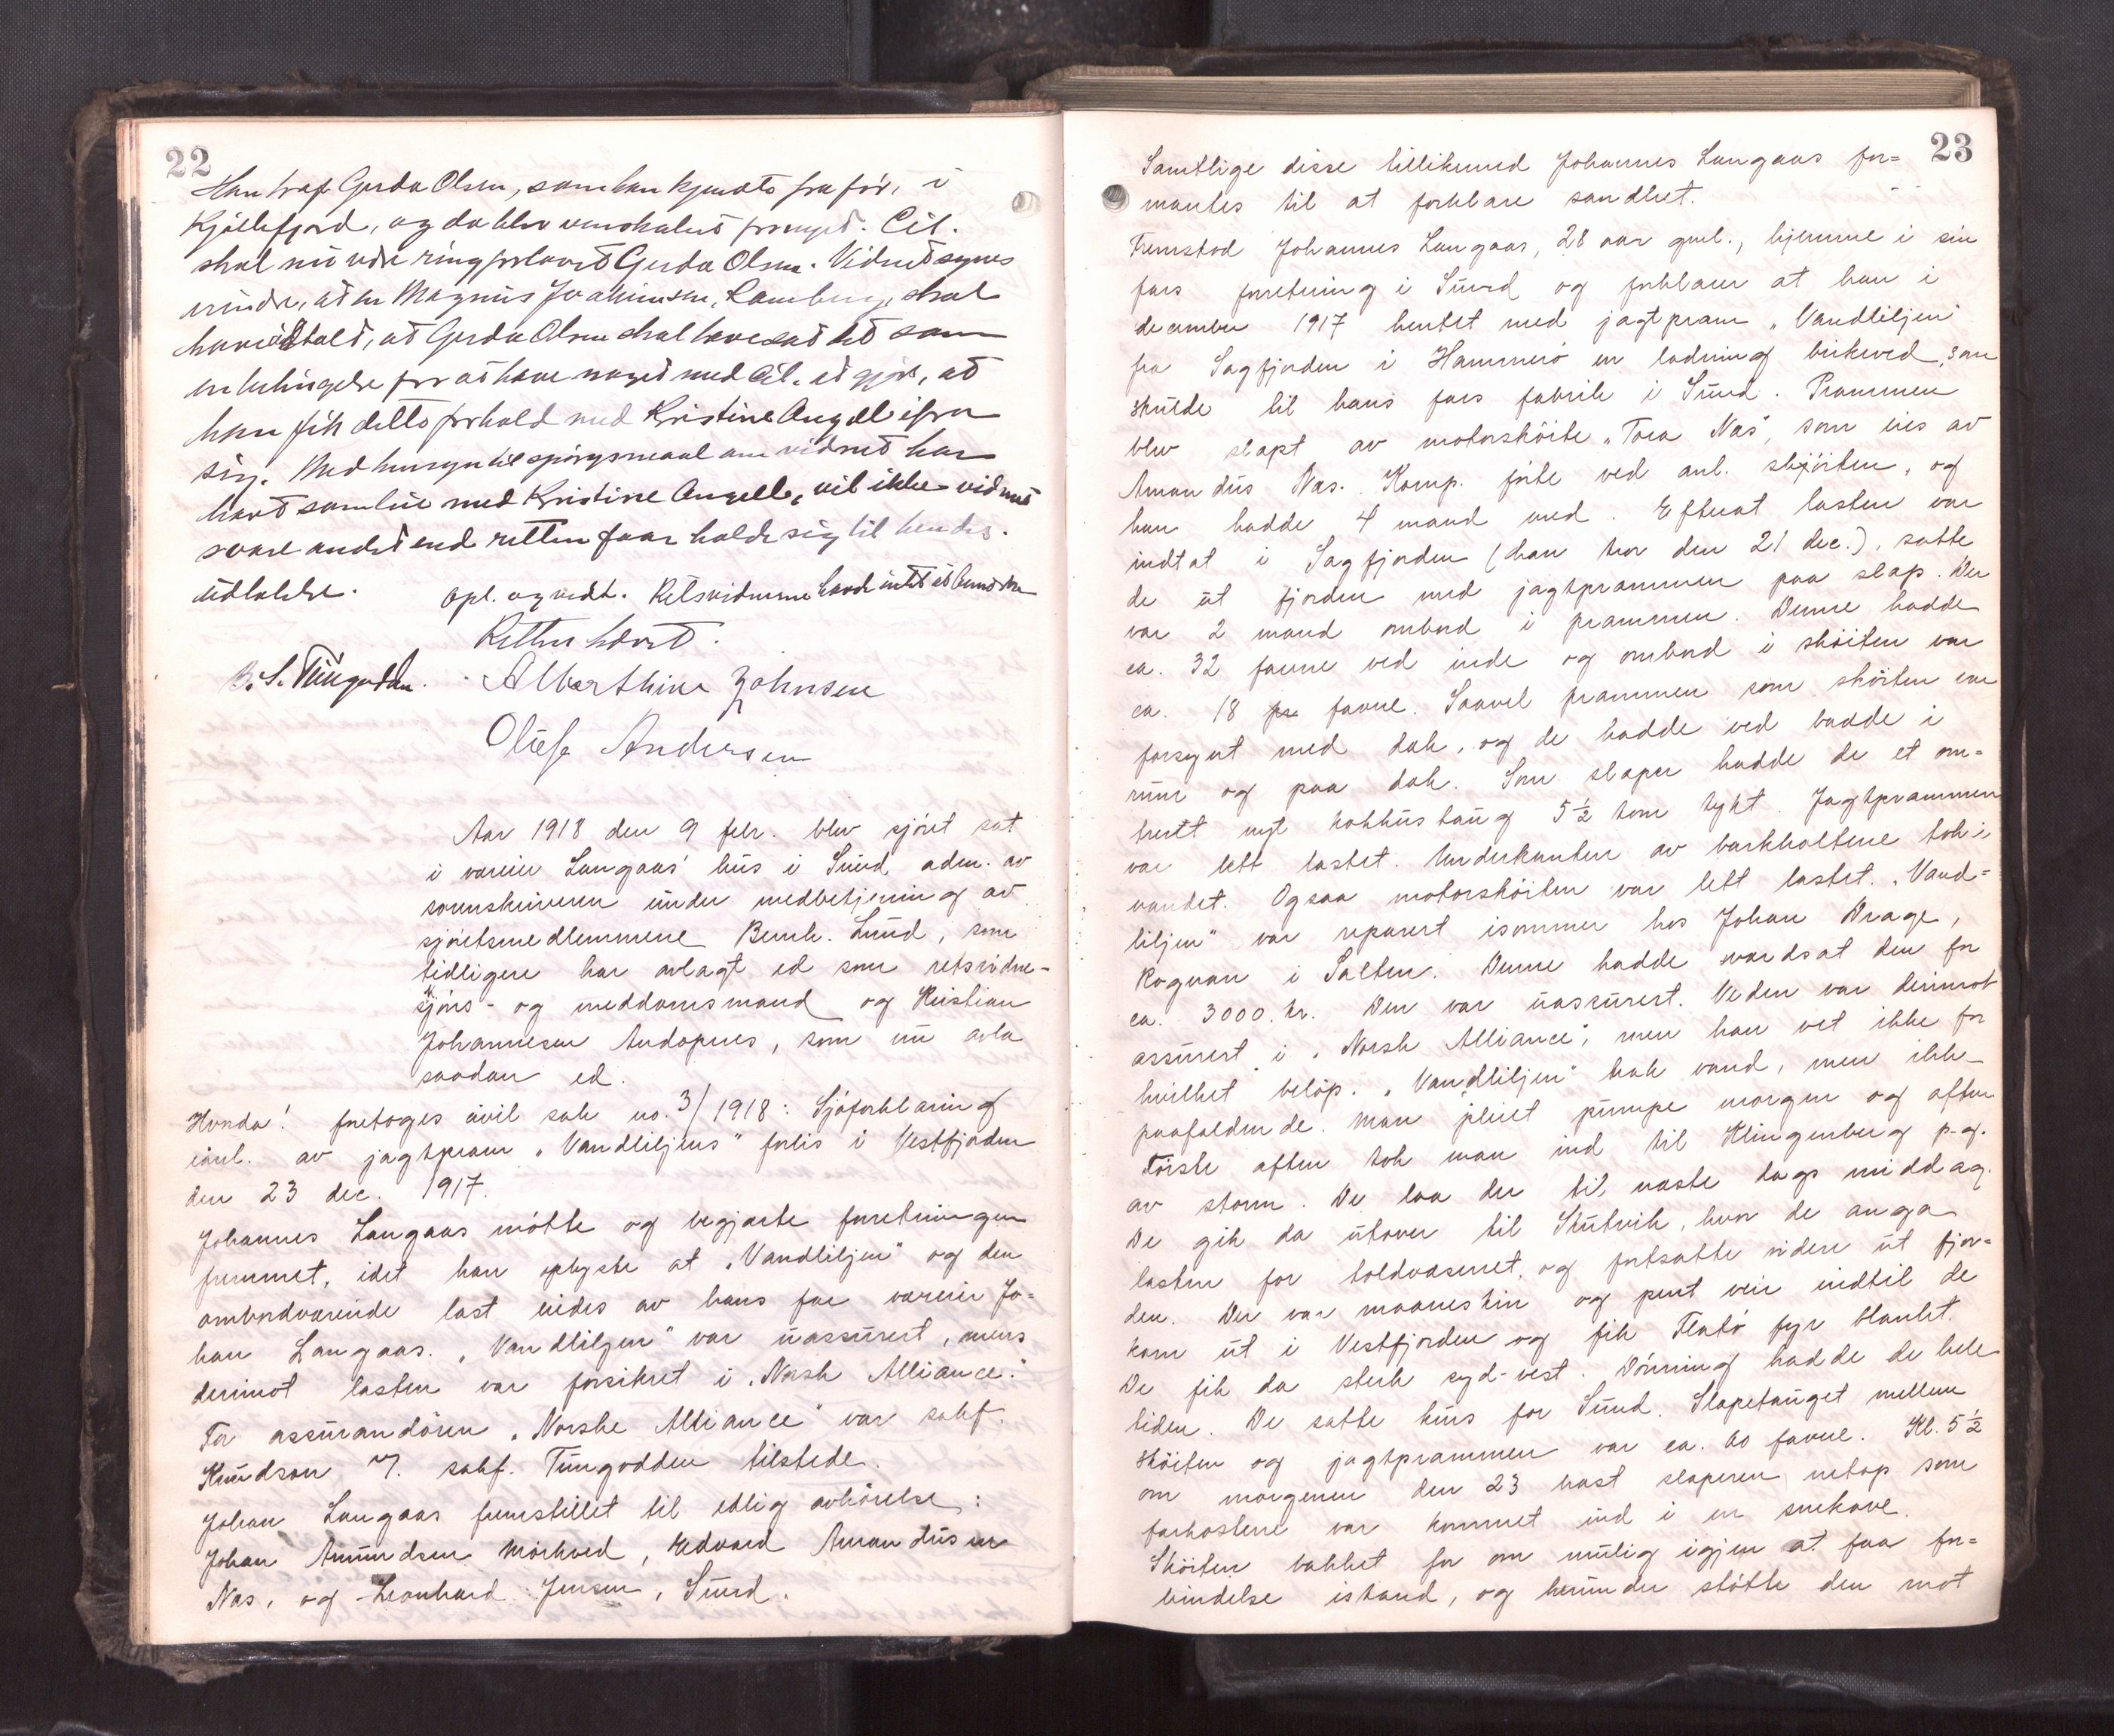 22
Han traf Gerda Olsen, som han kjendte fra før, i
Kjøllefjord, og da blev venskabet fornyet. Cit.
skal nu være ringforlovet Gerda Olsen. Vidnet synes
erindre, at en Magnus Joakimsen, Ramberg, skal
have utalt, at Gerda Olsen skal have sat det som
en betingelse for at have noget med Cit. at gjøre, at
han fik dette forhold med Kristine Angell ifra
sig. Med hensyn til spørgsmaal om vidnet har
havt samleie med Kristine Angell, vil ikke vidnet
svare andet end retten faar holde sig til hendes
udtalelse. Opl. og vedt. Retsvidnerne havde intet at bemærke
Retten hævet.
Alberthine Johnsen
Oluf Andersen
Aar 1918 den 9 febr. blev sjøret sat
i væreier Langaas' hus i Sund adm. av
sorenskriveren under medbetjening av
sjøretsmedlemmene Bernh. Lund, som
tidligere har avlagt ed som retsvidne-
sjørs- og meddomsmand og Kristian
Johannesen Andopnes, som nu avla
saadan ed.
Hvorda! foretoges civil sak no. 3/1918: Sjøforklaring
i anl. av jagtpram "Vandliljens" forlis i Vestfjorden
den 23 dec. 1917.
Johannes Langaas møtte og begjærte forretningen
fremmet, idet han oplyste at "Vandliljen" og den
ombordværende last eiedes av hans far væreier Jo=
han Langaas. "Vandliljen" var uassurert, mens
derimot lasten var forsikret i "Norsk Alliance".
For assurandøren "Norske Alliance" var sakf.
Knudson v. sakf. Tungodden tilstede.
Johan Langaas fremstillet til edlig avhørelse:
Johan Amundsen Mørkved, Edvard Amandusen
Næs, og Leonhard Jensen, Sund.
23
Samtlige disse tillikemed Johannes Langaas for=
mantes til at forklare sandhet.
Fremstod Johannes Langaas, 28 aar gml., hjemme i sin
fars forretning i Sund og forklarer at han i
december 1917 hentet med jagtpram "Vandliljen"
fra Sagfjorden i Hammerø en ladning birkeved, som
skulde til hans fars fabrik i Sund. Prammen
blev slæpt av motorskøite "Tora Næs", som eies av
Amandus Næs. Komp. førte ved anl. skjøiten, og
han hadde 4 mand med. Efterat lasten var
indtat i Sagfjorden (han tror den 21 dec.), satte
de ut fjorden med jagtprammen paa slæp. Der
var 2 mand ombord i prammen. Denne hadde
ca. 32 favne ved inde og ombord i skøiten var
ca. 18 favne. Saavel prammen som skøiten var
forsynt med dæk, og de hadde ved baade i
rum og paa dæk. Som slæper hadde de et om=
trent nyt kokkustaug 5½ tom tykt. Jagtprammen
var lett lastet. Underkanten av barkholtene tok i
vandet. Ogsaa motorskøiten var lett lastet. "Vand=
liljen" var reparert isommer hos Johan Drage,
Rognan i Salten. Denne hadde værdsat den for
ca. 3000. kr. Den var uassurert. Veden var derimot
assurert i "Norsk Alliance", men han vet ikke for
hvilket beløp. "Vandliljen" trak vand, men ikke
paafaldende. Man pleiet pumpe morgen og aften
Første aften tok man ind til Klingenberg p.g.
av storm. De laa der til næste dags middag.
De gik da utover til Skutvik, hvor de anga
lasten for toldvæsenet, og fortsatte videre ut fjor=
den. Der var maaneskin og pent veir indtil de
kom ut i Vestfjorden og fik Flatø fyr blankt.
De fik da sterk syd-vest. Dønning hadde de hele
tiden. De satte kurs for Sund. Slæpetauget mellem
skøiten og jagtprammen var ca. 60 favne. Kl. 5½
om morgenen den 23 brast slæperen netop som
farkostene var kommet ind i en snekave.
Skøiten bakket for om mulig igjen at faa for=
bindelse istand, og herunder støtte den mot